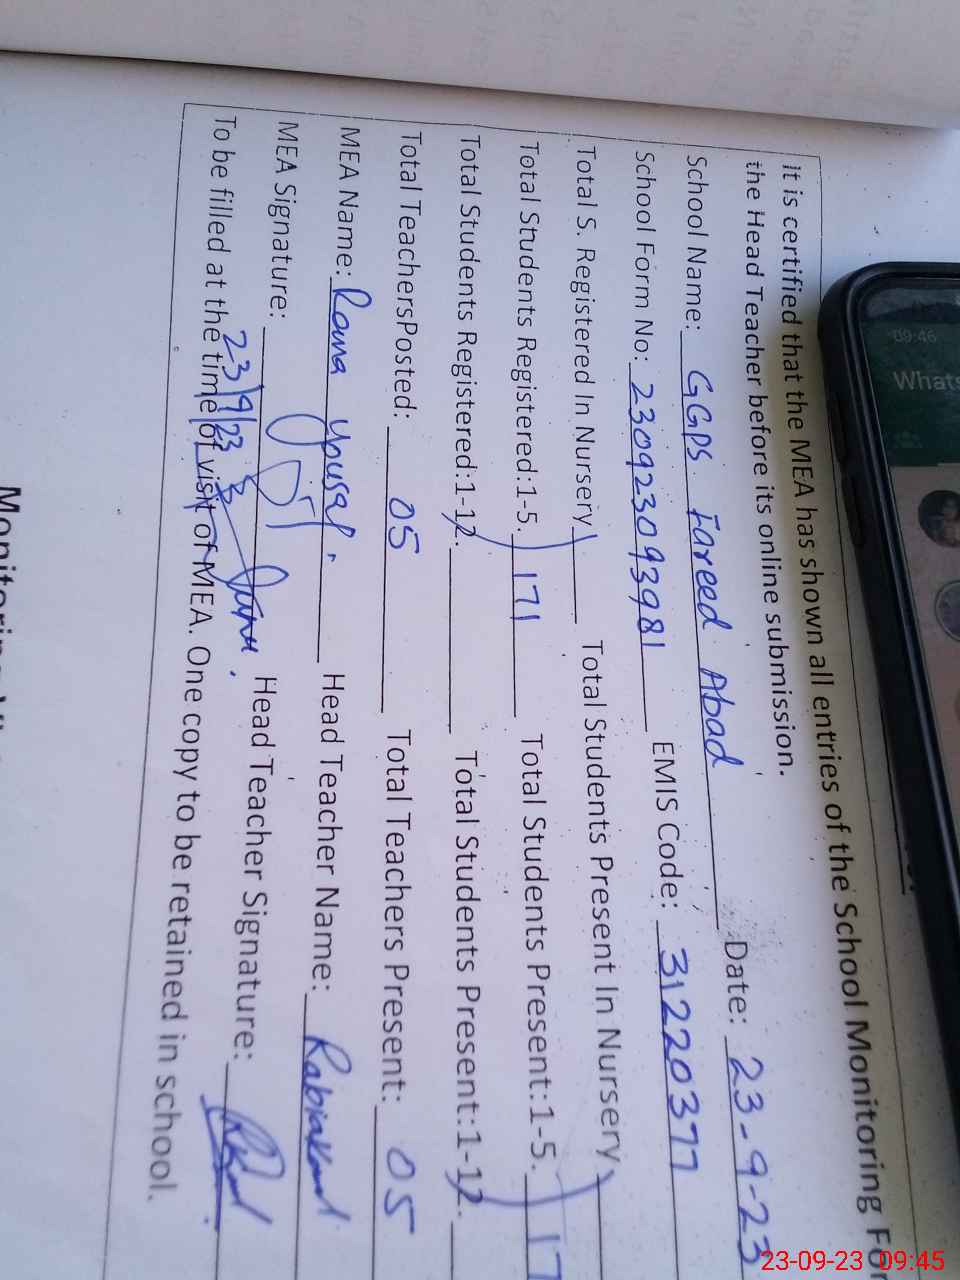 It is certified that the MEA has shown all entries of the School Monitoring For
the Head Teacher before its online submission.
School Name: GGPS Fareed Abad Date: 23-9-23
School Form No: 230923093981 EMIS Code: 31220377
Total S. Registered In Nursery Total Students Present In Nursery
Total Students Registered:1-5. 171 Total Students Present:1-5. 17
Total Students Registered:1-12. Total Students Present:1-12.
Total TeachersPosted: 05 Total Teachers Present: 05
MEA Name: Rana Yousaf. Head Teacher Name:
MEA Signature: Head Teacher Signature:
23/9/23
To be filled at the time of visit of MEA. One copy to be retained in school.
09:46
Whats
23-09-23 09:45